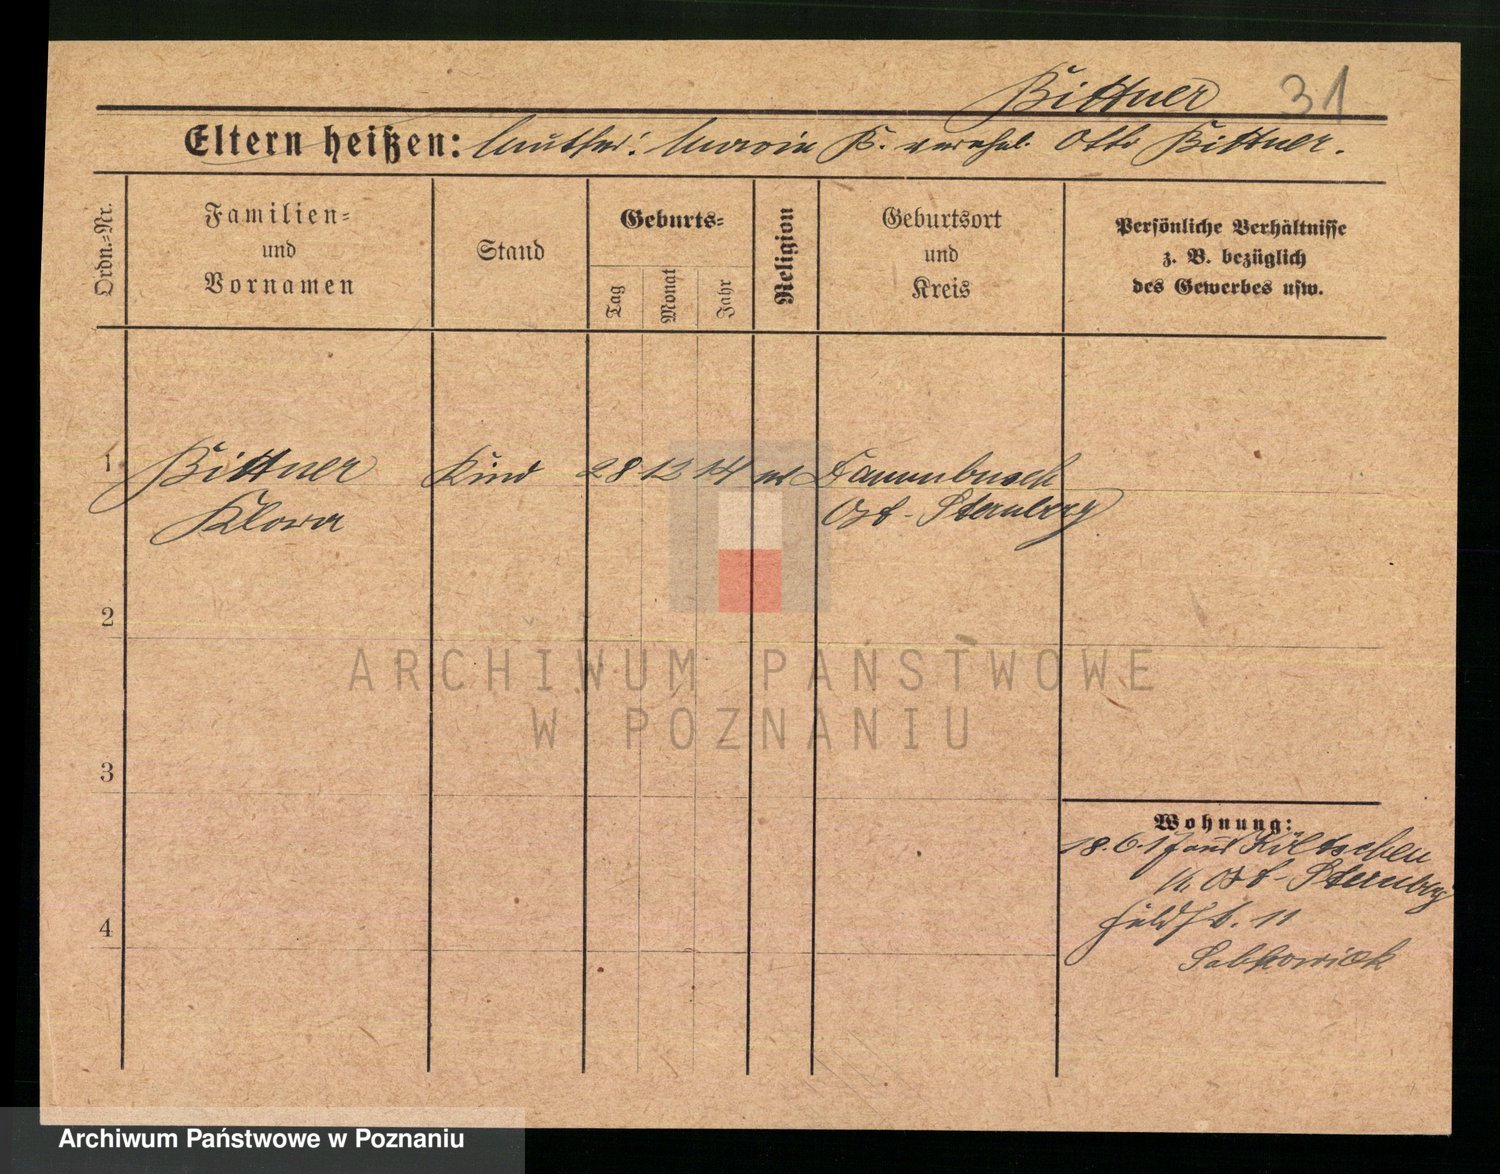 Bittner 31
Eltern heißen: Mutter: Marie B. verehel. Otto Bittner.
Ordn.=Nr.
Familien=
und
Vornamen
Stand
Geburts=
Tag
Monat
Jahr
Religion
Geburtsort
und
Kreis
Persönliche Verhältnisse
z. B. bezüglich
des Gewerbes usw.
1 Bittner Kind 28 12 14 ev Dammbusch
Klara Ost-Sternberg
2
3
4
Wohnung:
18.6.17 aus Költschen
K. Ost-Sternberg
Feldstr. 11
Sabkowiak
ARCHIWUM PAŃSTWOWE
W POZNANIU
Archiwum Państwowe w Poznaniu